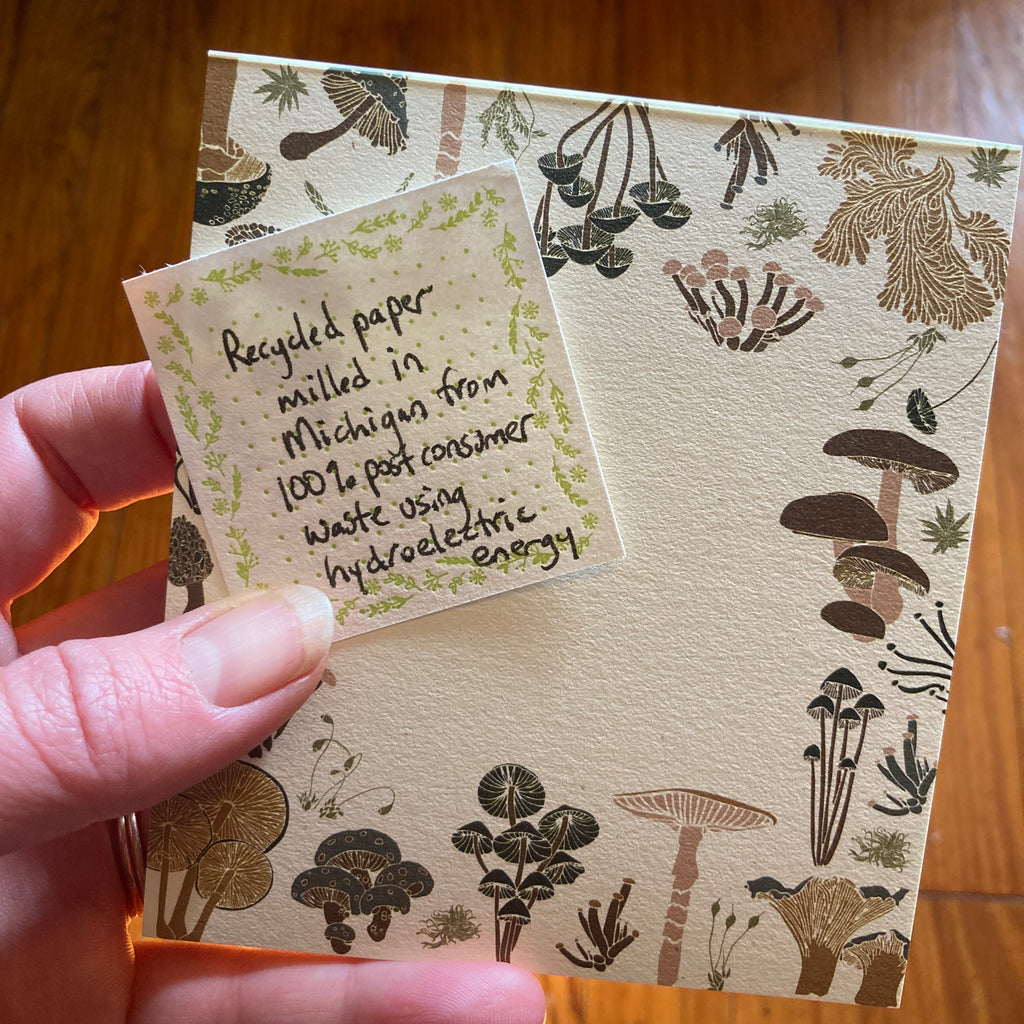 Recycled paper
milled in
Michigan from
100% post consumer
waste using
hydroelectric
energy